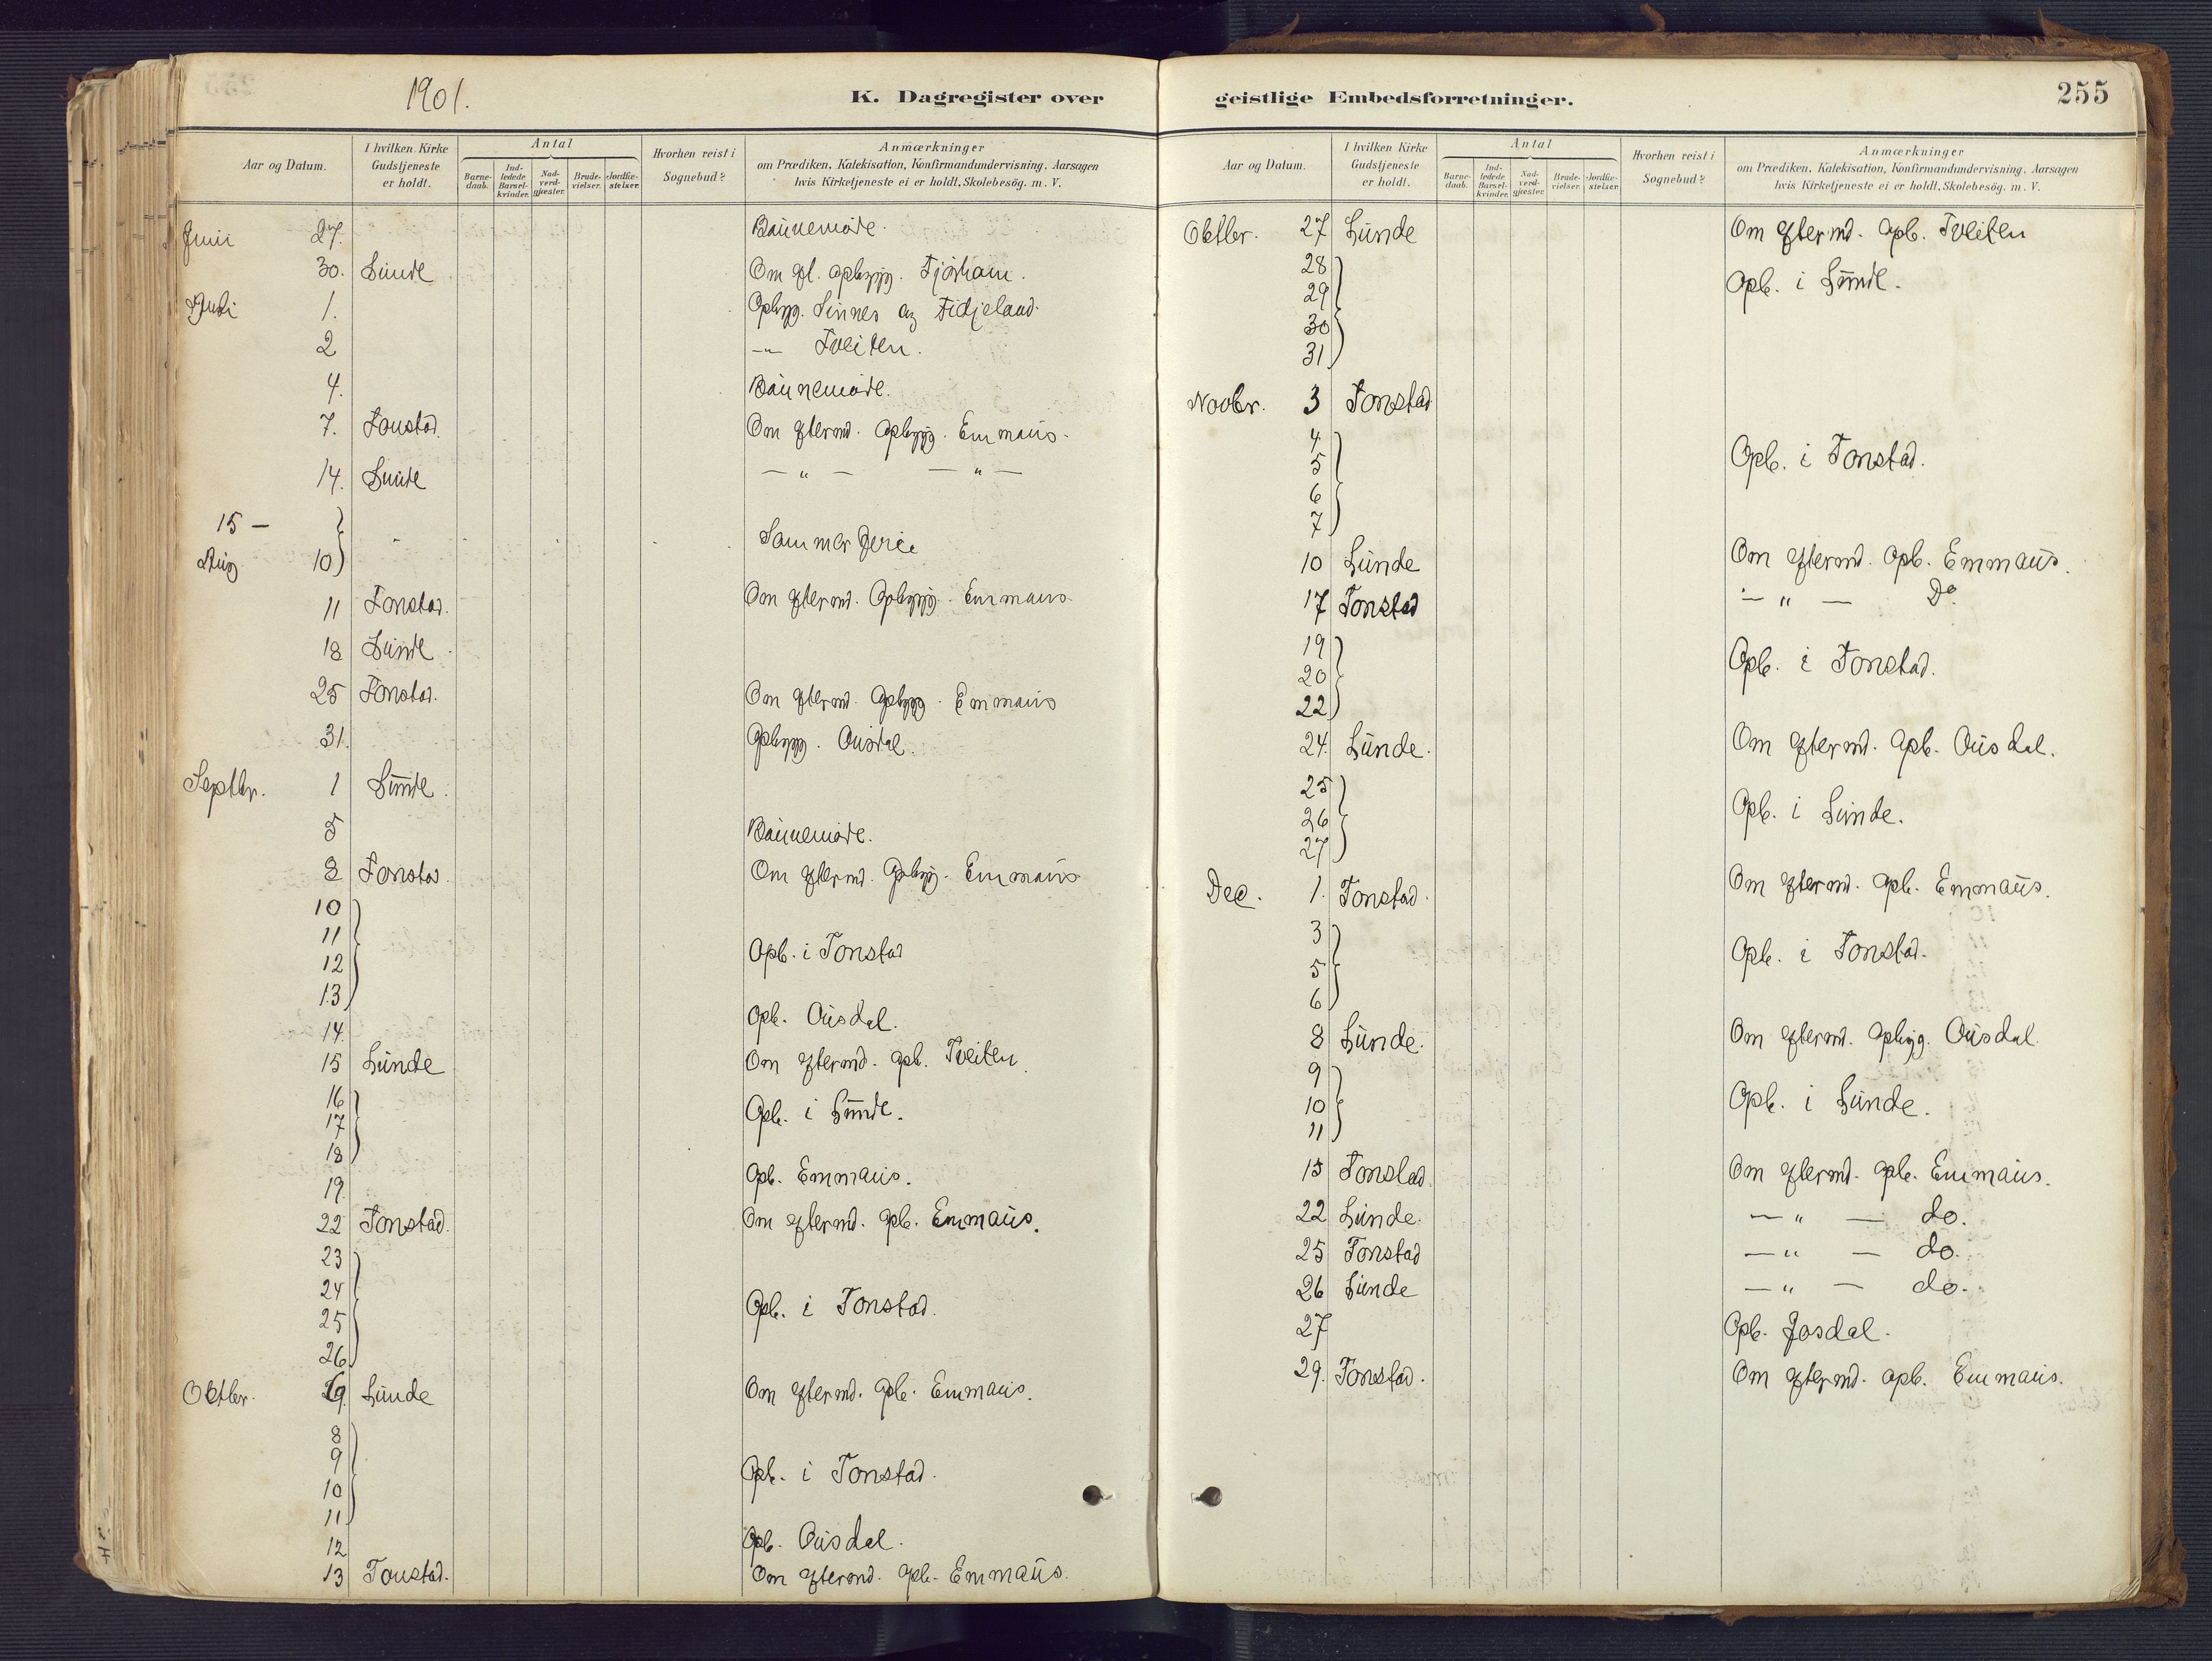 1901.
K. Dagregister over
Aar og Datum. I hvilken Kirke Gudstjeneste er holdt. Antal Barnedaab. Indledede Barselkvinder. Nadverdgjester. Brudevielser. Jordfæstelser. Hvorhen reist i Sognebud? Anmærkninger om Prædiken, Katekisation, Konfirmandundervisning, Aarsagen hvis Kirketjeneste ei er holdt, Skolebesög. m. V.
Juni 27. Bønnemøde.
30. Lunde Om Ef. opbygg. Tjørham.
Juli 1. Opbyg. Sinnes og Fidjeland.
2 -"- Tveiten.
4. Bønnemøde.
7. Tonstad. Om Eftermd. Opbygg. Emmaus.
14. Lunde — " — — " —
15 —
Aug 10 Sommerferie
11 Tonstad. Om Eftermd. Opbygg. Emmaus
18 Lunde
25 Tonstad. Om Eftermd. Opbygg. Emmaus
31. Opbygg. Ousdal.
Septbr. 1 Lunde.
5 Bønnemøde.
8 Tonstad. Om Eftermd. Opbyg. Emmaus
10
11
12 Opb. i Tonstad
13
14. Opb. Ousdal.
15 Lunde Om Eftermd. Opb. Tveiten.
16
17 Opb. i Lunde.
18
19. Opb. Emmaus.
22 Tonstad. Om Eftermd. Opb. Emmaus.
23
24
25 Opb. i Tonstad.
26
Oktbr. Lunde Om Eftermd. Opb. Emmaus.
8
9
10 Opb. i Tonstad.
11
12 Opb. Ousdal.
13 Tonstad. Om Eftermd. Opb. Emmaus.
geistlige Embedsforretninger.
255
Aar og Datum. I hvilken Kirke Gudstjeneste er holdt. Antal Barnedaab. Indledede Barselkvinder. Nadverdgjester. Brudevielser. Jordfæstelser. Hvorhen reist i Sognebud? Anmærkninger om Prædiken, Katekisation, Konfirmandundervisning, Aarsagen hvis Kirketjeneste ei er holdt, Skolebesög. m. V.
Oktbr. 27 Lunde Om Eftermd. Opb. Tveiten
28
29 Opb. i Lunde.
30
31
Novbr. 3 Tonstad
4
5 Opb. i Tonstad.
6
7
10 Lunde Om Eftermd. Opb. Emmaus.
17 Tonstad — " — Do
19
20 Opb. i Tonstad.
22
24 Lunde. Om Eftermd. Opb. Ousdal.
25
26 Opb. i Lunde.
27
Dec. 1. Tonstad. Om Eftermd. Opb. Emmaus.
3
5 Opb. i Tonstad.
6
8 Lunde. Om Eftermd. Opbyg. Ousdal.
9
10 Opb. i Lunde.
11
15 Tonstad. Om Eftermd. Opb. Emmaus.
22 Lunde. — " — do.
25 Tonstad — " — do.
26 Lunde — " — do.
27 Opb. Josdal.
29. Tonstad. Om Eftermd. Opb. Emmaus.